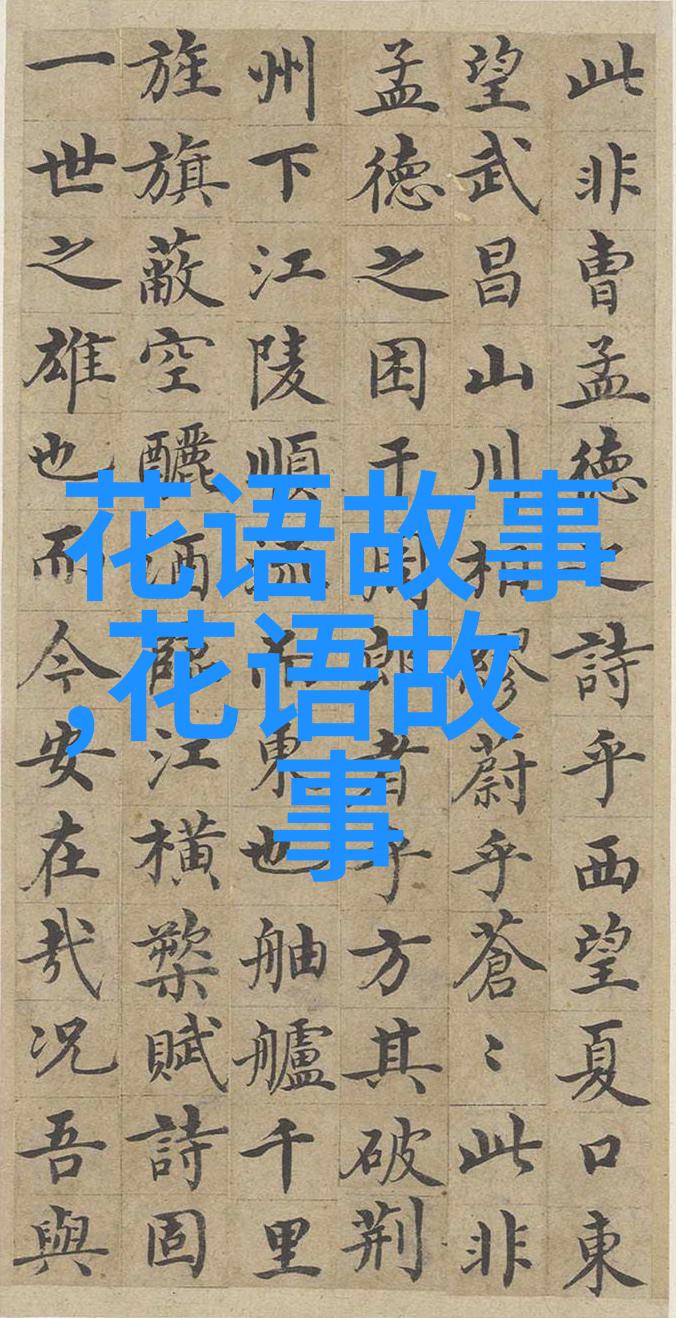 此非曹孟德之詩乎西望夏口東
望武昌山川相繆蔚乎蒼〻此非
孟德之困于周郎者乎方其破荊
州下江陵順流而東也舳艫千里
旌旗蔽空釃酒臨江橫槊賦詩固
一世之雄也而今安在哉况吾與
花语故事
,花语故
事